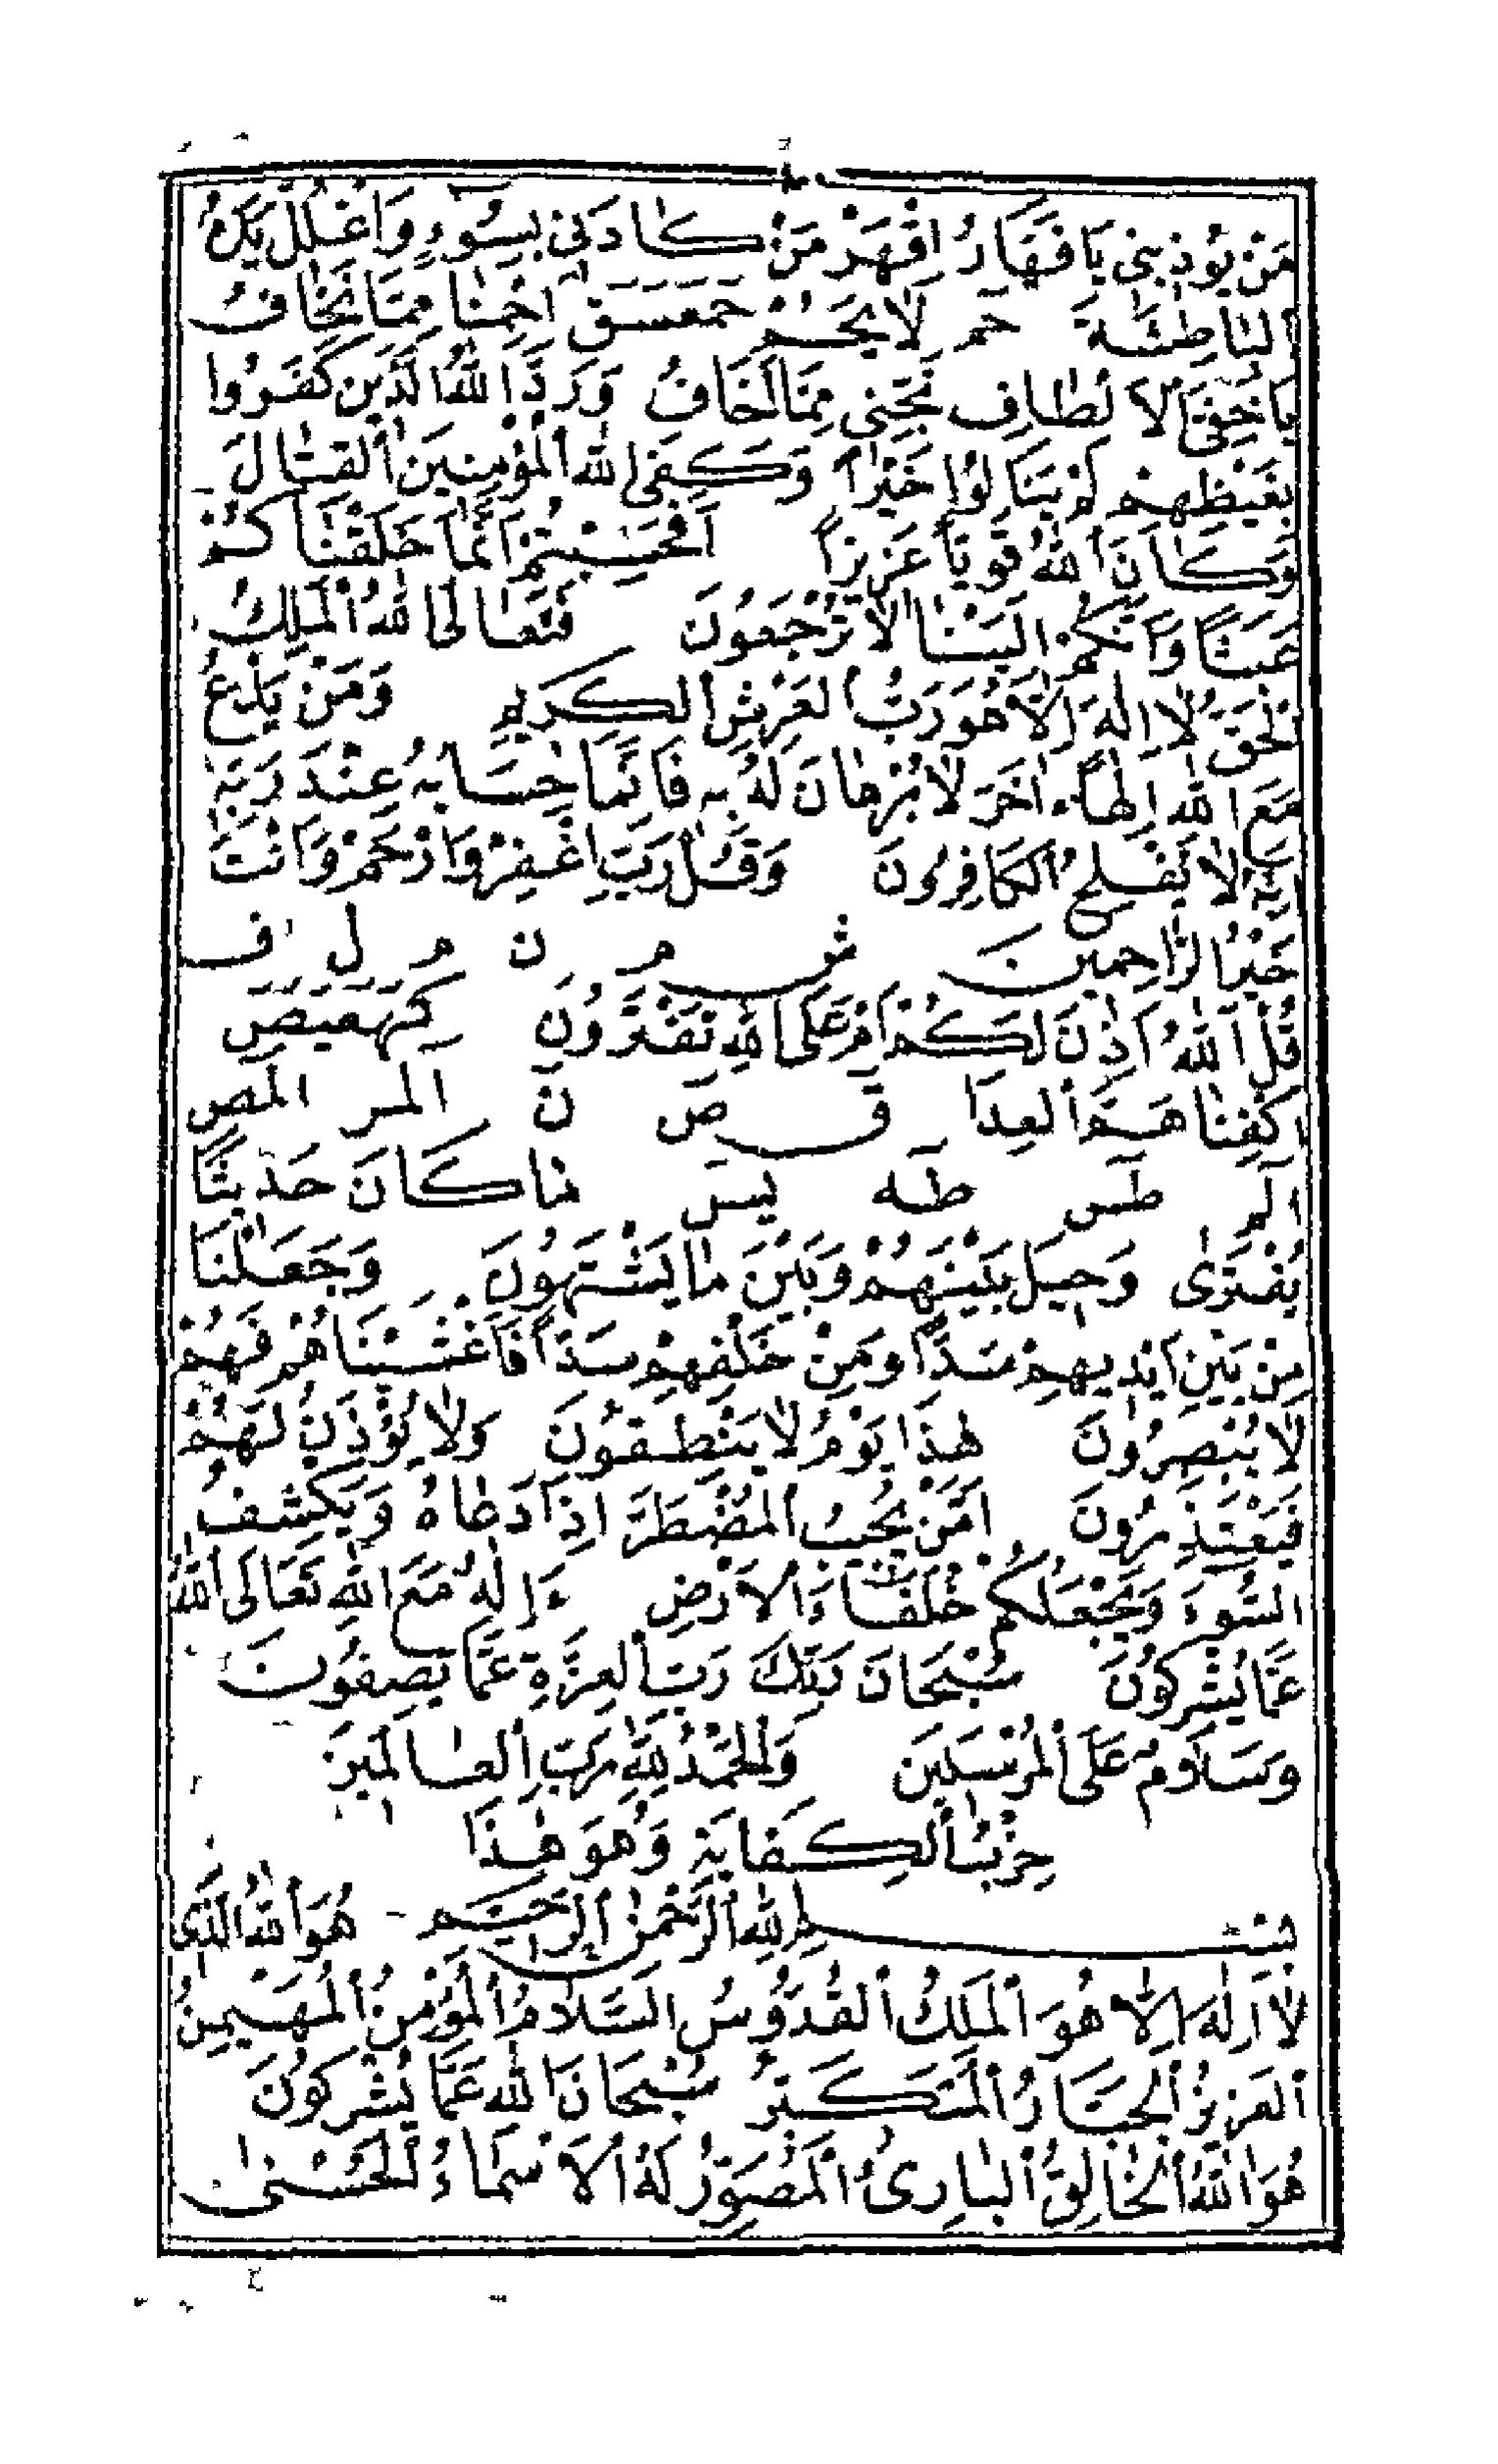 مَنْ يُؤْذِينِي يَا قَهَّارُ اِقْهَرْ مَنْ كَادَنِي بِسُوءٍ وَاغْلُلْ يَدَهُ
الْبَاطِشَةَ حٰم لَا يُحْمَ حٰمعسق اَحِمْنَا مِمَّا نَخَافُ
يَا خَفِيَّ الْاَلْطَافِ نَجِّنِي مِمَّا اَخَافُ وَرَدَّ اللهُ الَّذِينَ كَفَرُوا
بِغَيْظِهِمْ لَمْ يَنَالُوا خَيْرًا وَكَفَى اللهُ الْمُؤْمِنِينَ الْقِتَالَ
وَكَانَ اللهُ قَوِيًّا عَزِيزًا اَفَحَسِبْتُمْ اَنَّمَا خَلَقْنَاكُمْ
عَبَثًا وَاَنَّكُمْ اِلَيْنَا لَا تُرْجَعُونَ فَتَعَالَى اللهُ الْمَلِكُ
الْحَقُّ لَا اِلٰهَ اِلَّا هُوَ رَبُّ الْعَرْشِ الْكَرِيمِ وَمَنْ يَدْعُ
مَعَ اللهِ اِلٰهًا اٰخَرَ لَا بُرْهَانَ لَهُ بِهِ فَاِنَّمَا حِسَابُهُ عِنْدَ رَبِّهِ
اِنَّهُ لَا يُفْلِحُ الْكَافِرُونَ وَقُلْ رَبِّ اغْفِرْ وَارْحَمْ وَاَنْتَ
خَيْرُ الرَّاحِمِينَ ش م ن م ل ف
قُلْ اٰللهُ اَذِنَ لَكُمْ اَمْ عَلَى اللهِ تَفْتَرُونَ كٓهٰيٰعٓصٓ
اِكْفِنَا هَمَّ الْعِدَا قٓ صٓ نٓ الٓمٓر الٓمٓصٓ
الٓمٓ طٰسٓ طٰه يٰسٓ مَا كَانَ حَدِيثًا
يُفْتَرٰى وَحِيلَ بَيْنَهُمْ وَبَيْنَ مَا يَشْتَهُونَ وَجَعَلْنَا
مِنْ بَيْنِ اَيْدِيهِمْ سَدًّا وَمِنْ خَلْفِهِمْ سَدًّا فَاَغْشَيْنَاهُمْ فَهُمْ
لَا يُبْصِرُونَ هٰذَا يَوْمُ لَا يَنْطِقُونَ وَلَا يُؤْذَنُ لَهُمْ
فَيَعْتَذِرُونَ اَمَّنْ يُجِيبُ الْمُضْطَرَّ اِذَا دَعَاهُ وَيَكْشِفُ
السُّوءَ وَيَجْعَلُكُمْ خُلَفَاءَ الْاَرْضِ ءَاِلٰهٌ مَعَ اللهِ تَعَالَى اللهُ
عَمَّا يُشْرِكُونَ سُبْحَانَ رَبِّكَ رَبِّ الْعِزَّةِ عَمَّا يَصِفُونَ
وَسَلَامٌ عَلَى الْمُرْسَلِينَ وَالْحَمْدُ لِلّٰهِ رَبِّ الْعَالَمِينَ
حِزْبُ الْكِفَايَةِ وَهُوَ هٰذَا
بِسْمِ اللهِ الرَّحْمٰنِ الرَّحِيمِ هُوَ اللهُ الَّذِي
لَا اِلٰهَ اِلَّا هُوَ الْمَلِكُ الْقُدُّوسُ السَّلَامُ الْمُؤْمِنُ الْمُهَيْمِنُ
الْعَزِيزُ الْجَبَّارُ الْمُتَكَبِّرُ سُبْحَانَ اللهِ عَمَّا يُشْرِكُونَ
هُوَ اللهُ الْخَالِقُ الْبَارِئُ الْمُصَوِّرُ لَهُ الْاَسْمَاءُ الْحُسْنٰى